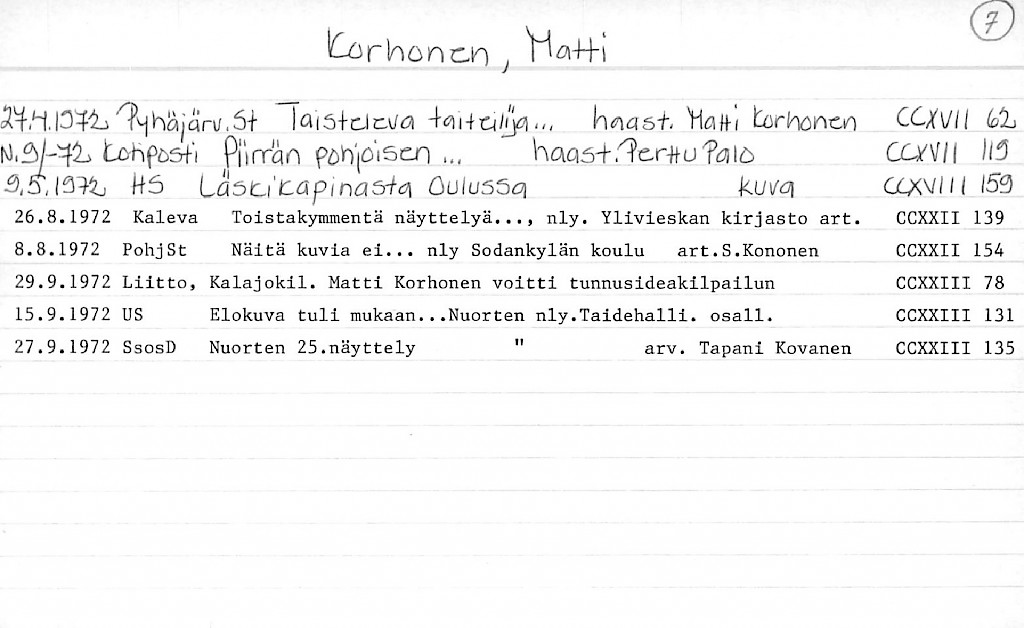 7
Korhonen, Matti
27.4.1972 Pyhäjärv.St Taisteleva taiteilija... haast. Matti Korhonen CCXVII 62
N.9/-72 Kotiposti Piirrän pohjoisen ... haast. Perttu Palo CCXVII 119
9.5.1972 HS Läskikapinasta Oulussa kuva CCXVIII 159
26.8.1972 Kaleva Toistakymmentä näyttelyä..., nly. Ylivieskan kirjasto art. CCXXII 139
8.8.1972 PohjSt Näitä kuvia ei... nly Sodankylän koulu art.S.Kononen CCXXII 154
29.9.1972 Liitto, Kalajokil. Matti Korhonen voitti tunnusideakilpailun CCXXIII 78
15.9.1972 US Elokuva tuli mukaan...Nuorten nly.Taidehalli. osall. CCXXIII 131
27.9.1972 SsosD Nuorten 25.näyttely " arv. Tapani Kovanen CCXXIII 135